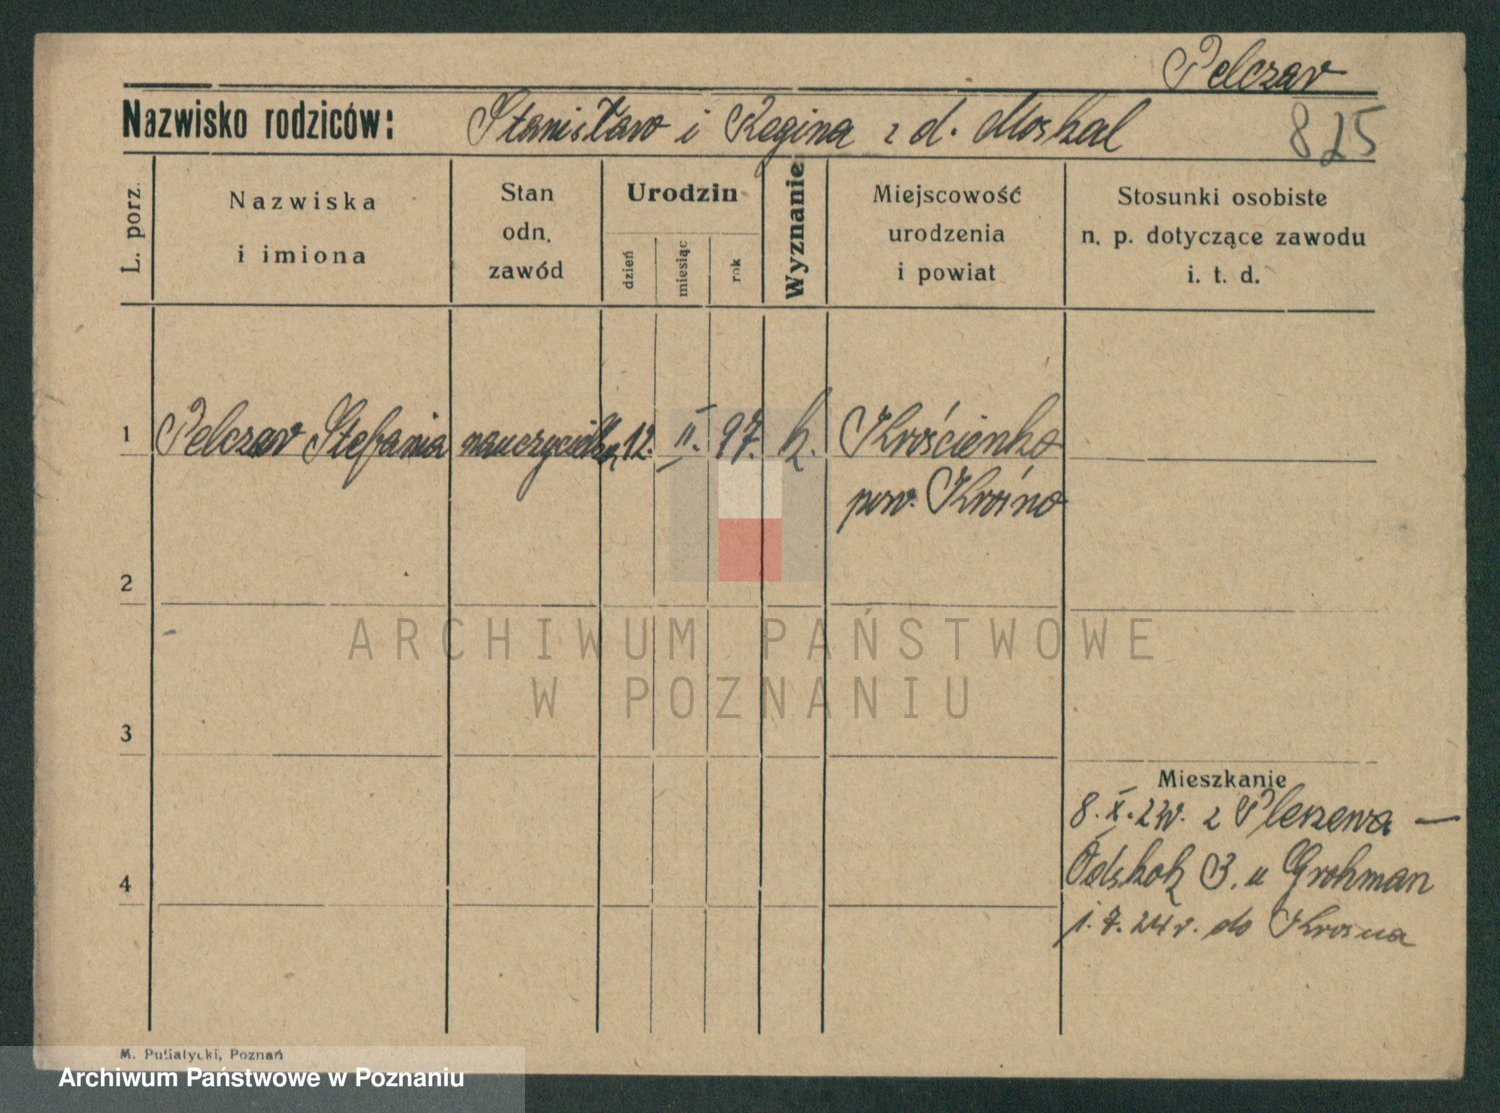 Pelczar
Nazwisko rodziców: Stanisław i Regina z d. Moskal 825
L. porz.
Nazwiska i imiona
Stan odn. zawód
Urodzin
dzień
miesiąc
rok
Wyznanie
Miejscowość urodzenia i powiat
Stosunki osobiste n. p. dotyczące zawodu i. t. d.
1 Pelczar Stefania nauczycielka 12. II. 97. k. Krościenko
pow. Krosno
2
ARCHIWUM PAŃSTWOWE
W POZNANIU
3
Mieszkanie
8. X. 23r. z Pleszewa —
Odskok 3. u Grohman
4
1. 7. 24 r. do Krosna
M. Putiatycki, Poznań
Archiwum Państwowe w Poznaniu